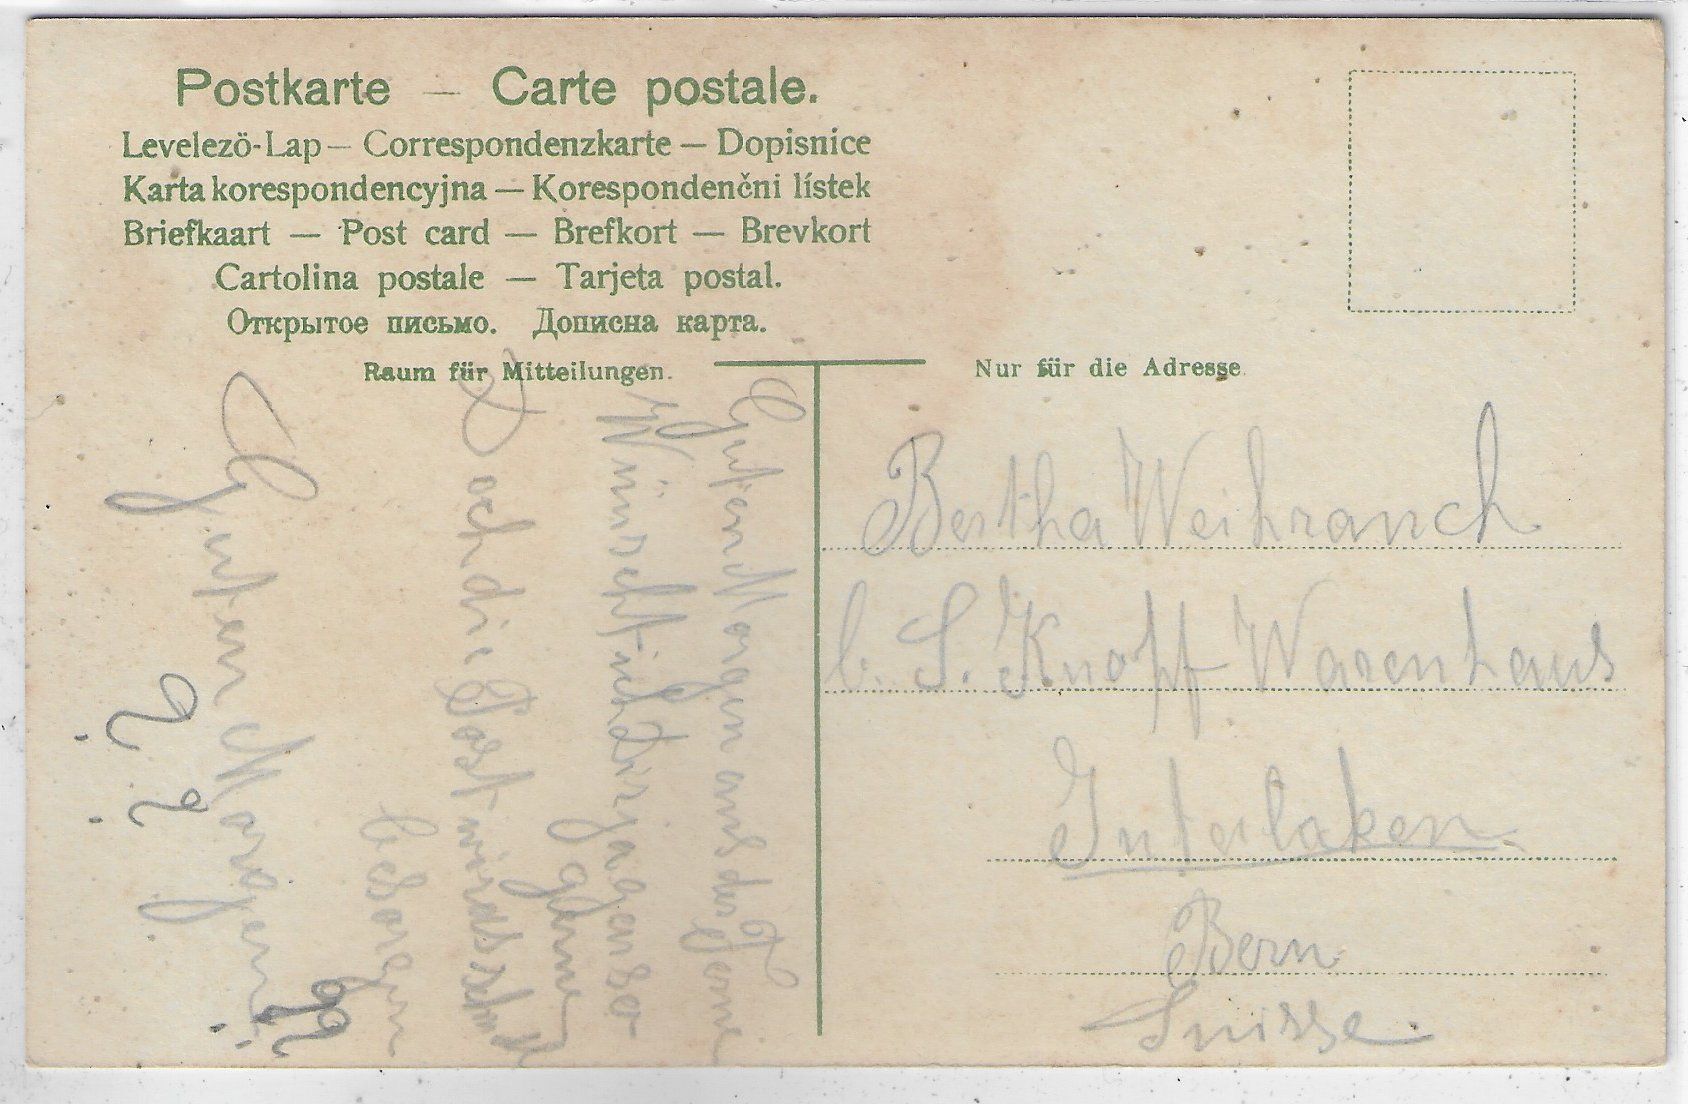 Postkarte — Carte postale.
Levelezö-Lap — Correspondenzkarte — Dopisnice
Karta korespondencyjna — Korespondenčni lístek
Briefkaart — Post card — Brefkort — Brevkort
Cartolina postale — Tarjeta postal.
Открытое письмо. Дописна карта.
Raum für Mitteilungen.
Nur für die Adresse.
Guten Morgen aus der Ferne
Wünscht ich Dir ja gar so
gerne
Doch die Post wirds
besorgen
Guten Morgen
Bertha Weihrauch
b. S. Knopf Warenhaus
Interlaken
Bern
Suisse